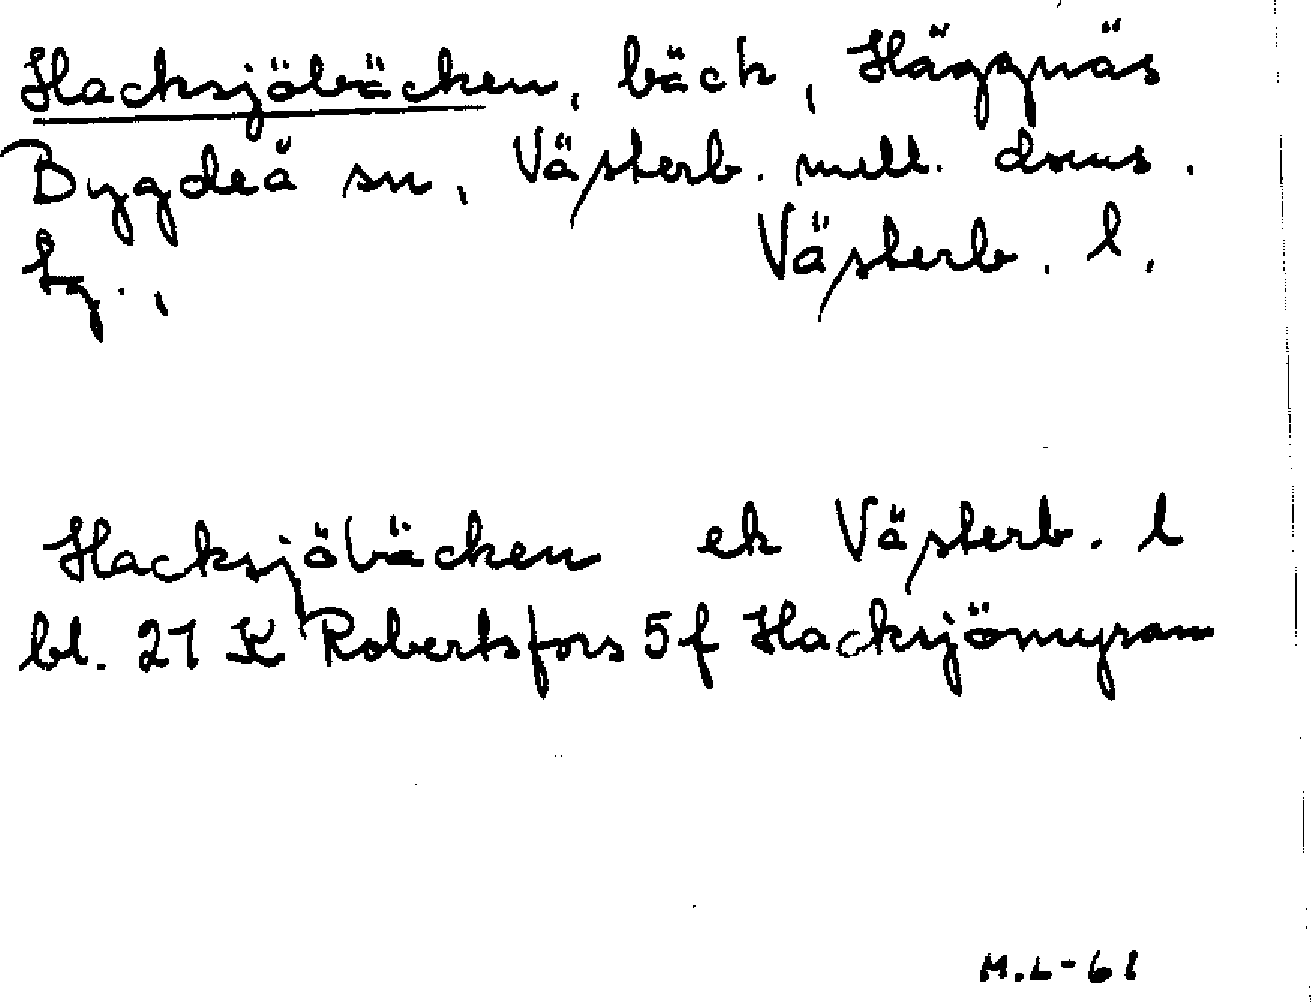 Hacksjöbäcken, bäck, Häggnäs
Bygdeå sn, Västerb. mell. doms.
tg., Västerb. l.
Hacksjöbäcken ek Västerb. l
bl. 21 K Robertsfors 5 f Hacksjömyran
M.L-61